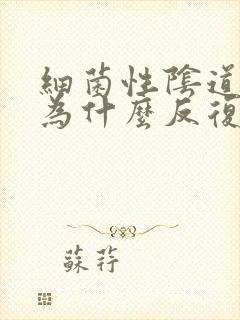 細菌性陰道
為什麼反復
蘇荇